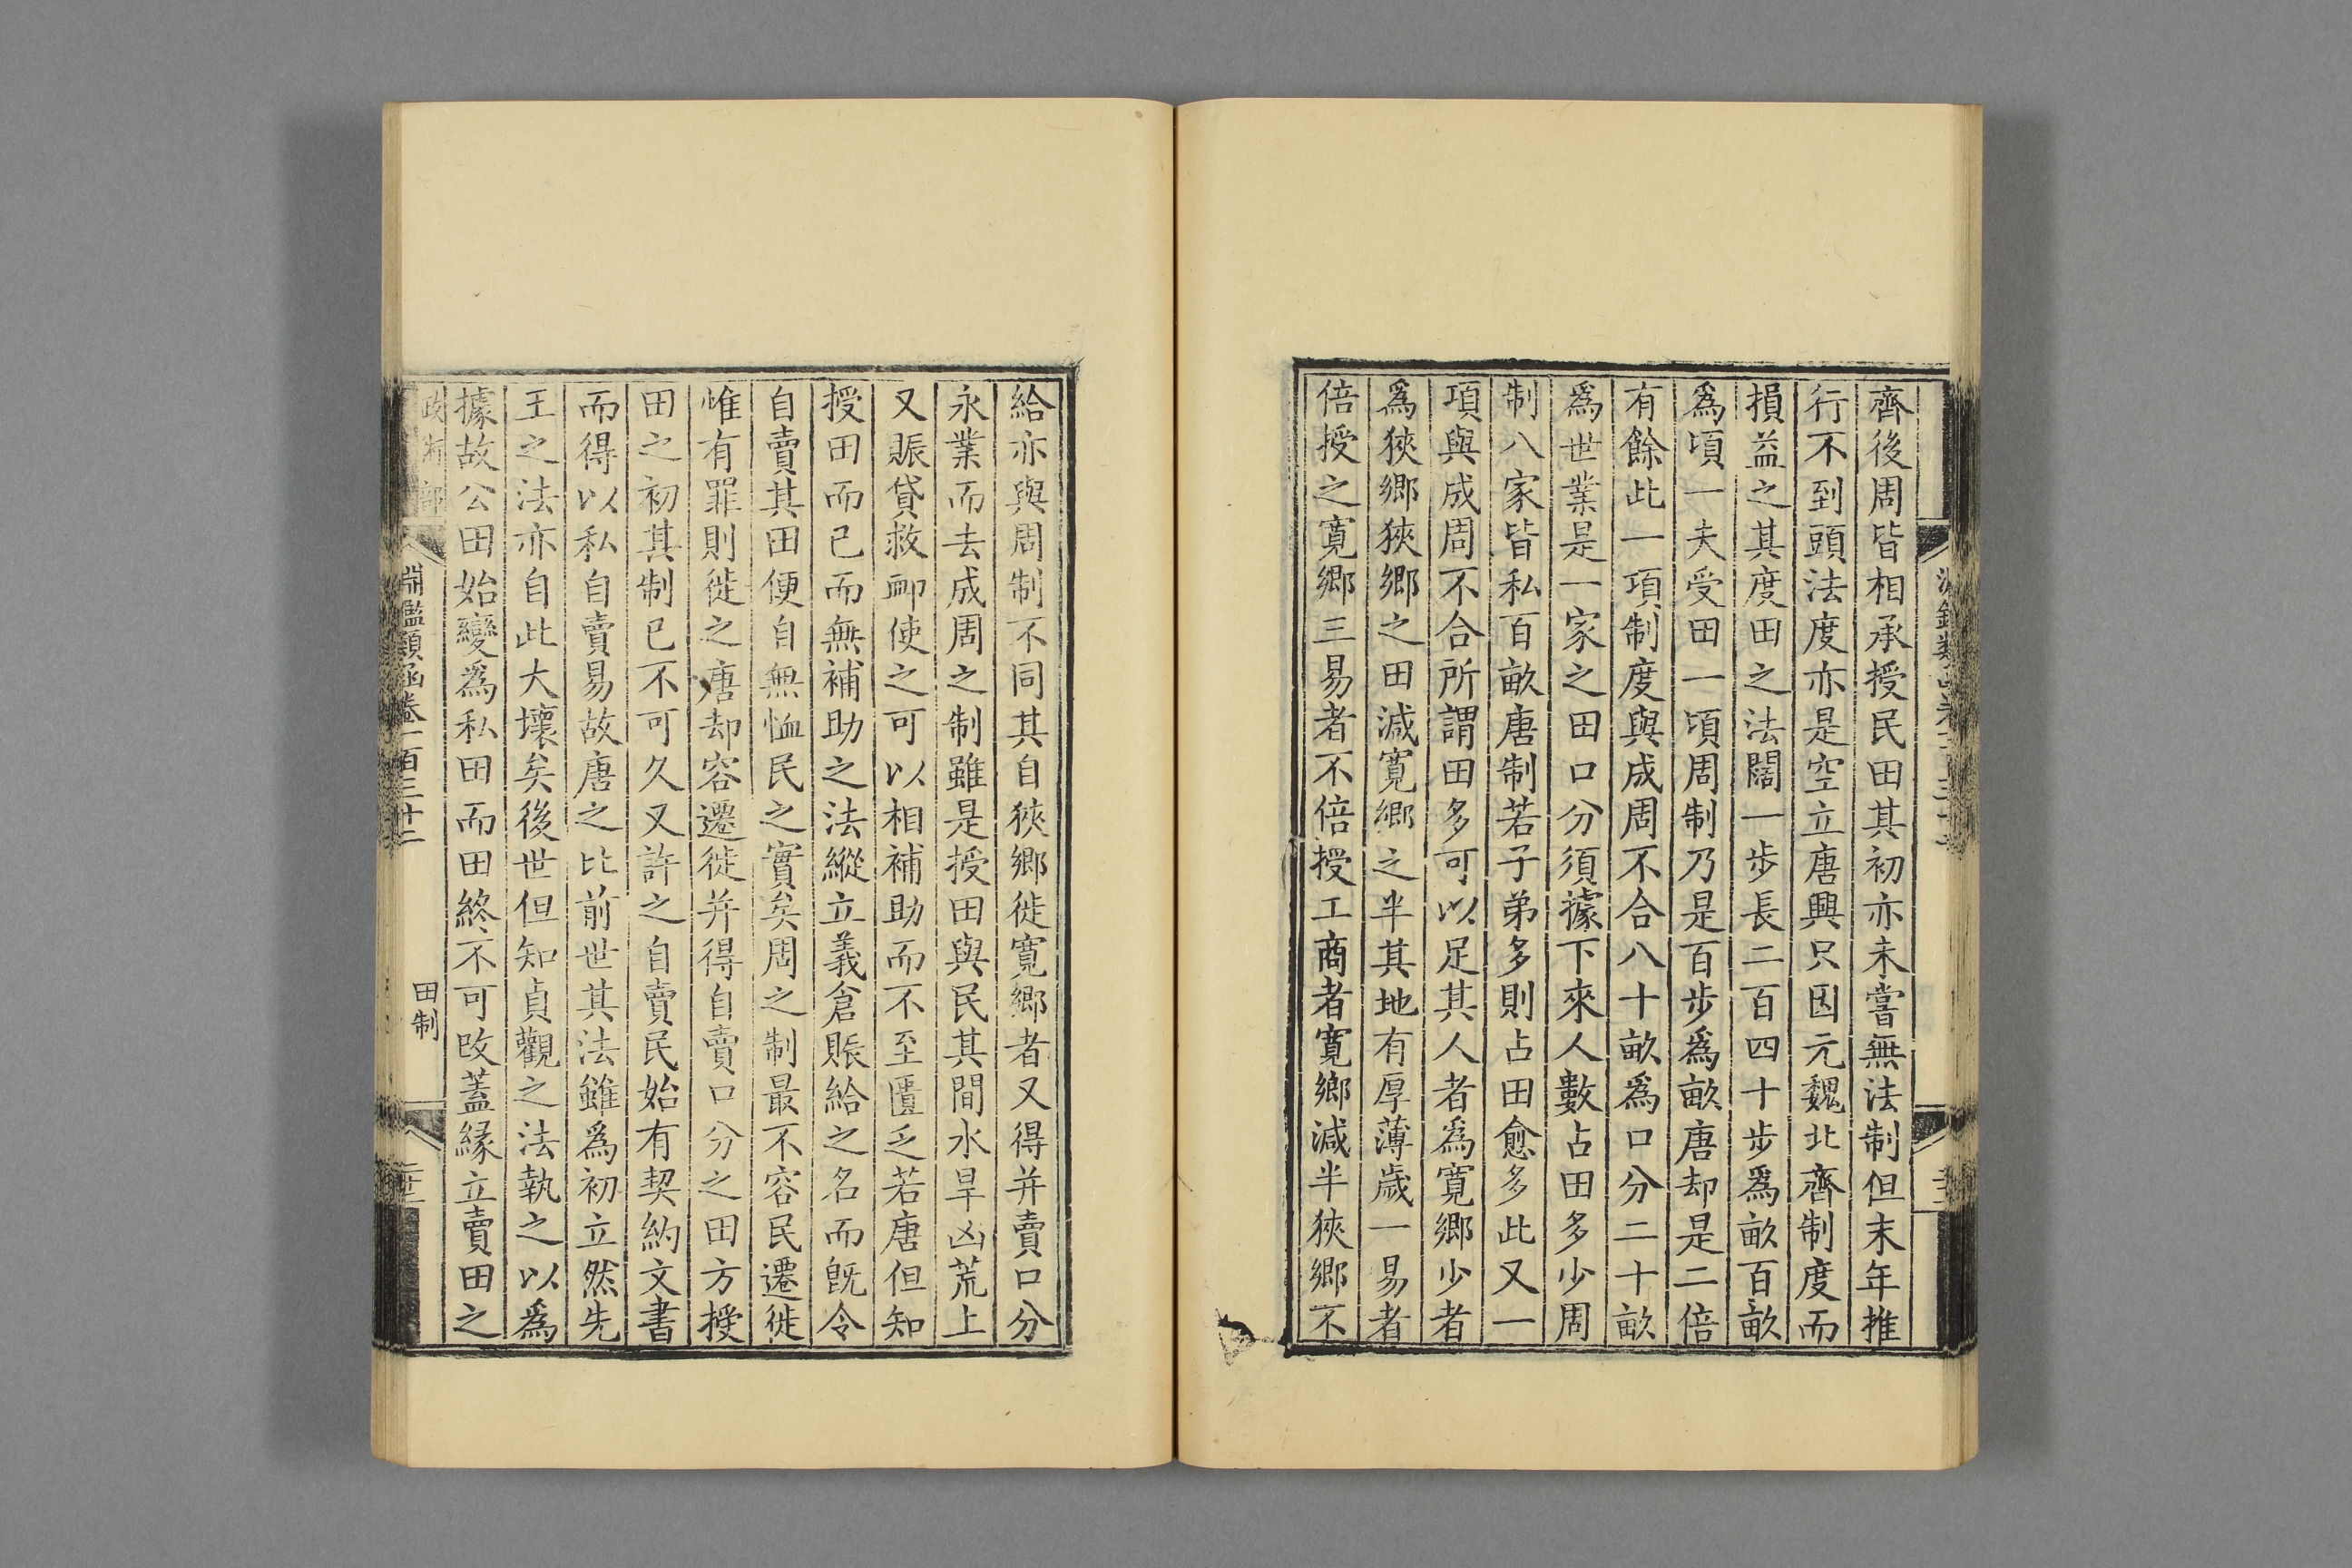 齊後周皆相承授民田其初亦未嘗無法制但末年推
行不到頭法度亦是空立唐興只因元魏北齊制度而
損益之其度田之法闊一步長二百四十步爲畝百畝
爲頃一夫受田一頃周制乃是百步爲畝唐却是二倍
有餘此一項制度與成周不合八十畝爲口分二十畝
爲世業是一家之田口分須據下來人數占田多少周
制八家皆私百畝唐制若子弟多則占田愈多此又一
項與成周不合所謂田多可以足其人者爲寛鄉少者
爲狹鄉狹鄉之田減寛鄉之半其地有厚薄歲一易者
倍授之寛鄉三易者不倍授工商者寛鄉減半狹鄉不
給亦與周制不同其自狹鄉徙寛鄉者又得并賣口分
永業而去成周之制雖是授田與民其間水旱凶荒上
又賑貸救䘏使之可以相補助而不至匱乏若唐但知
授田而已而無補助之法縱立義倉賑給之名而既令
自賣其田便自無恤民之實矣周之制最不容民遷徙
惟有罪則徙之唐却容遷徙并得自賣口分之田方授
田之初其制已不可久又許之自賣民始有契約文書
而得以私自賣易故唐之比前世其法雖爲初立然先
王之法亦自此大壞矣後世但知貞觀之法執之以爲
據故公田始變爲私田而田終不可改蓋緣立賣田之
政術部 淵鑑類函卷一百三十二 田制